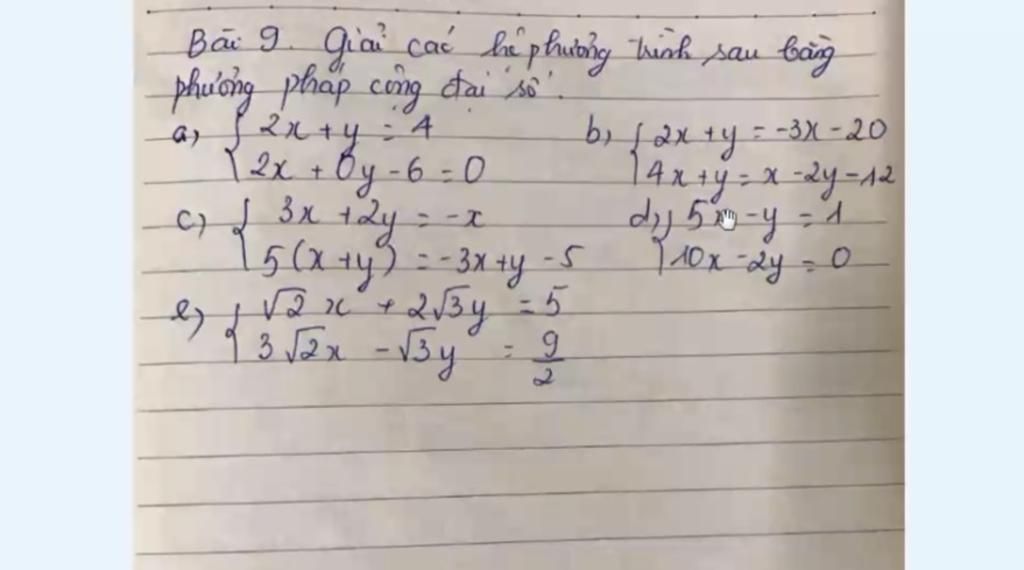 Bài 9. Giải các hệ phương trình sau bằng
phương pháp cộng đại số.
a) { 2x + y = 4
2x + 0y - 6 = 0
b) { 2x + y = -3x - 20
4x + y = x - 2y - 12
c) { 3x + 2y = -x
5(x + y) = -3x + y - 5
d) { 5x - y = 1
10x - 2y = 0
e) { √2 x + 2√3y = 5
3√2x - √3y = 9/2